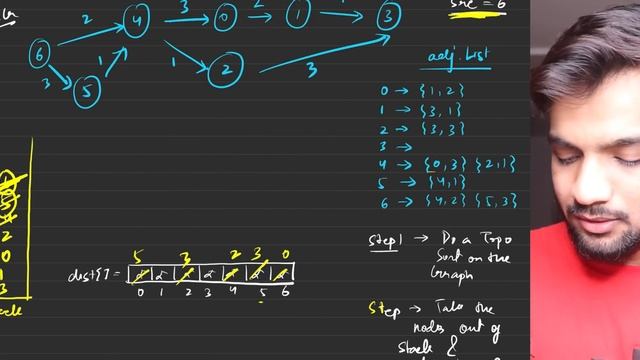 src = 6
2
3
2
1
4
0
1
3
6
3
1
1
2
3
5
adj. List
0 → {1, 2}
1 → {3, 1}
2 → {3, 3}
3 →
4 → {0, 3} {2, 1}
5 → {4, 1}
6 → {4, 2} {5, 3}
2
0
1
3
5 3 2 3 0
dist[] =
0 1 2 3 4 5 6
Step 1 → Do a Topo
Sort on the
Graph
Step → Take the
nodes out of
stack &